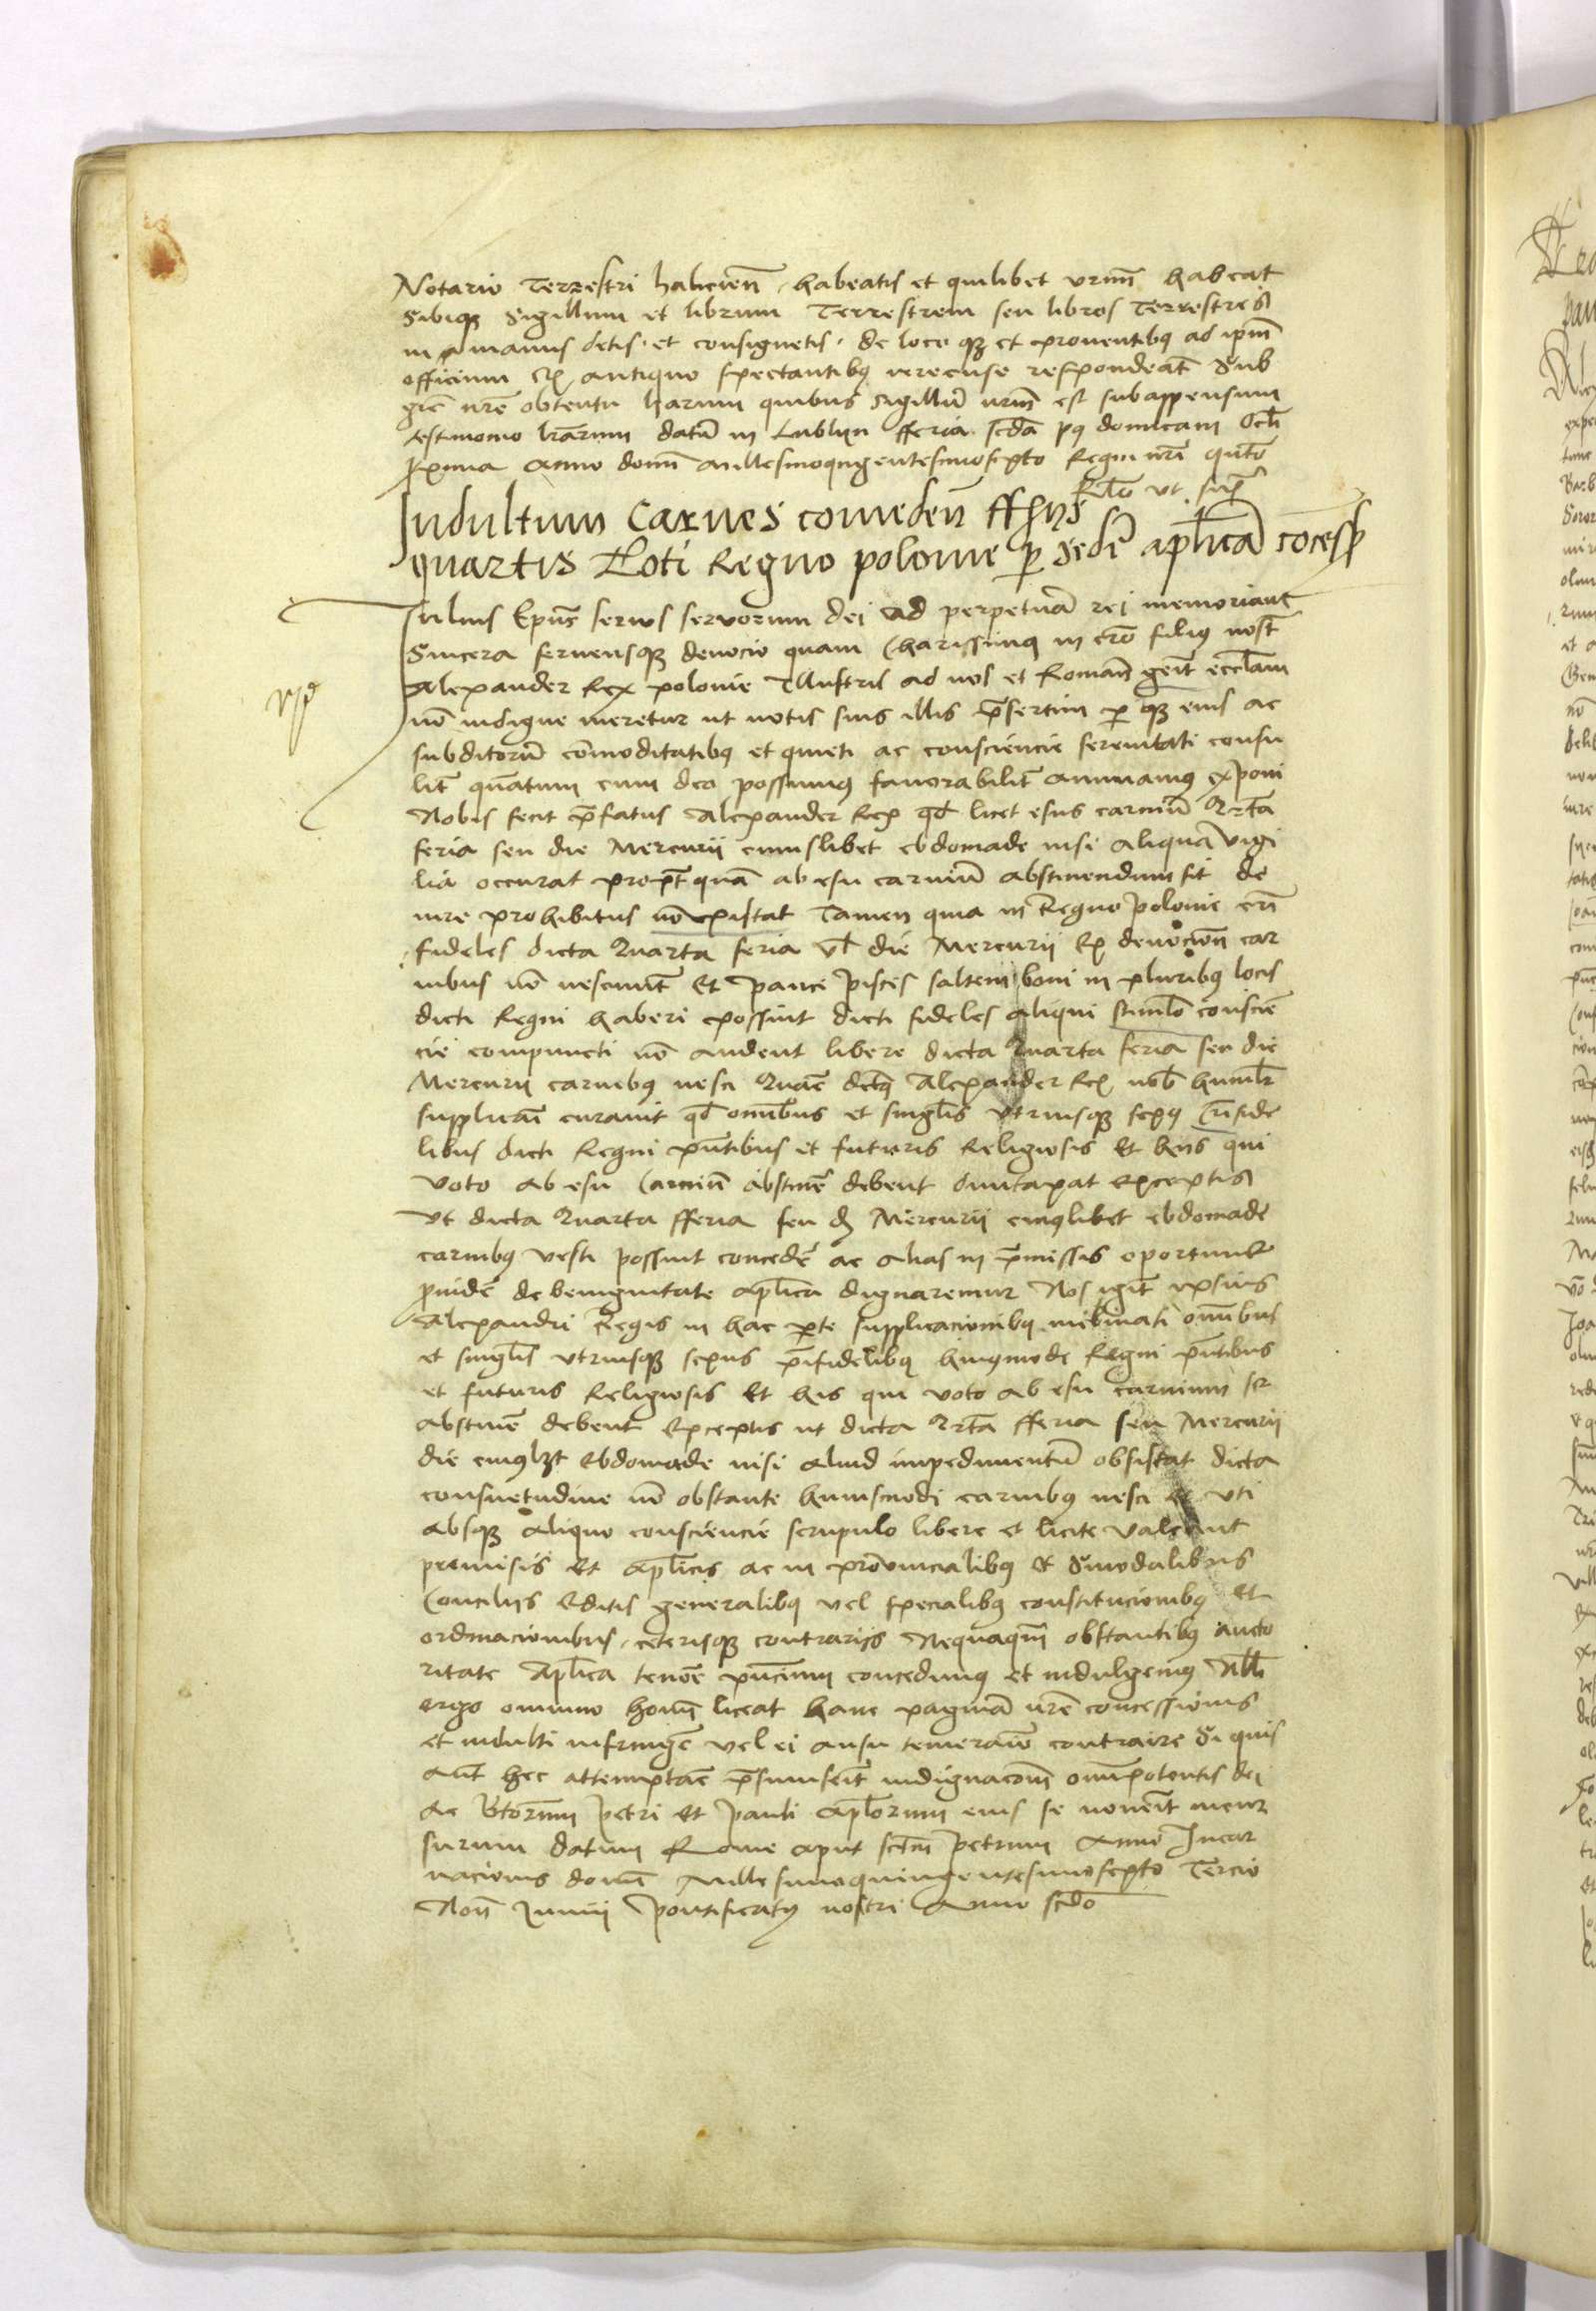 Notario Terrestri halicien̄ habeatis et quilibet vrm̄ habeat
Sibiqȝ Sigillum et librum Terrestrem seu libros Terrestres
in manus detis et consignetis de loco qȝ et prouentibꝰ ad ipm̄
officium ex antiquo spectantibꝰ respondeat Sub
grē nr̄e obtentu harum quibus sigillū nrm̄ est subappensum
testimonio lrarum datū in Lublyn fferia scd̄a pꝰ domicam Oculi
proxima Anno domī Millesimoqngentesimosexto Regni nrī qnto
Rlō ut supra
Indultum Carnes comeden̄ fferijs
quartis Toti Regno polonie per Sedē aplicā cōcessū
Iulius Epūs seruus seruorum dei Ad perpetuā rei memoriam
Sincera feruensqȝ deuocio quam Charissimꝰ in cro filiꝰ nost̄
Alexander Rex polonie Illustris ad nos et Romanā gerit ecclam
nō indigne meretur ut votis suis illis p̄sertim per qȝ eius ac
subditorū cōmoditatibꝰ et quieti ac consciencie serenitati consu
lit̄ quātum cum deo possumꝰ fauorabilit̄ annuamꝰ exponi
Nobis fecit p̄fatus Alexander Rex qd̄ licet esus carniū Qrta
feria seu die Mercurii cuiuslibet ebdomade nisi aliqua vigi
lia occurat propt̄ quā ab esu carniū abstinendum sit de
iure prohibitus nō existat Tamen quia in Regno polonie cri
fideles dicta Quarta feria vl̄ die Mercurii ex deuocion̄ car
nibus nō vescunt̄ Et pauci pisces saltem boni in pluribꝰ locis
dicti Regni haberi possint dicti fideles aliqui stimlo conscien
cie compuncti nō audent libere dicta Quarta feria seu die
Mercurii carnibꝰ vesci Quare dictꝰ Alexander Rex nob̄ humilr
supplicari curauit qd̄ omībus et singlis vtriusqȝ sexꝰ crifide
libus dicti Regni pn̄tibus et futuris Religiosis et hijs qui
Voto ab esu Carniū abstinē debent duntaxat exceptis
Vt dicta Quarta fferia seu d Mercurii cuiꝰlibet ebdomade
carnibꝰ vesci possint concedē ac Alias in p̄missis oportune
prouidē de benignitate aplica dignaremur Nos igit̄ ipsius
Alexandri Regis in hac p̄te supplicacionibꝰ inclinati omībus
et singlis vtriusqȝ sexus fidelibꝰ huiꝰmodi Regni pn̄tibus
et futuris Religiosis Et his qui voto ab esu carnium
abstinē debent Exceptis ut dicta Qrta fferia seu Mercurii
die cuiꝰlȝt Ebdomade nisi aliud impedimentū obsistat dicta
consuetudine nō obstante huiusmodi carnibꝰ vesci et vti
Absqȝ Aliquo consciencie scrupulo libere et licite valeant
premissis Et aplicis ac in prouincialibꝰ et Sinodalibus
Conciliis Editis generalibꝰ vel specialibꝰ constitucionibꝰ Et
ordinacionibus ceterisqȝ contrariis Nequaquā obstantibꝰ Aucto
ritate Aplica tenorē pn̄cium concedimꝰ et indulgemꝰ Nulli
ergo omnino homī liceat hanc paginā nr̄e concessionis
et indulti infringē vel ei ausu temerario contraire Si quis
Aut̄ hec attemptarē p̄sumserit indignacōem omīpotentis dei
Ac Btorum petri et pauli aplorum eius se nouerit incur
surum datum Rome aput sctm petrum Anno Incar
nacionis domī Millesimoquingentesimosexto Tercio
Non̄ Junii Pontificatꝰ nostri Anno scdo